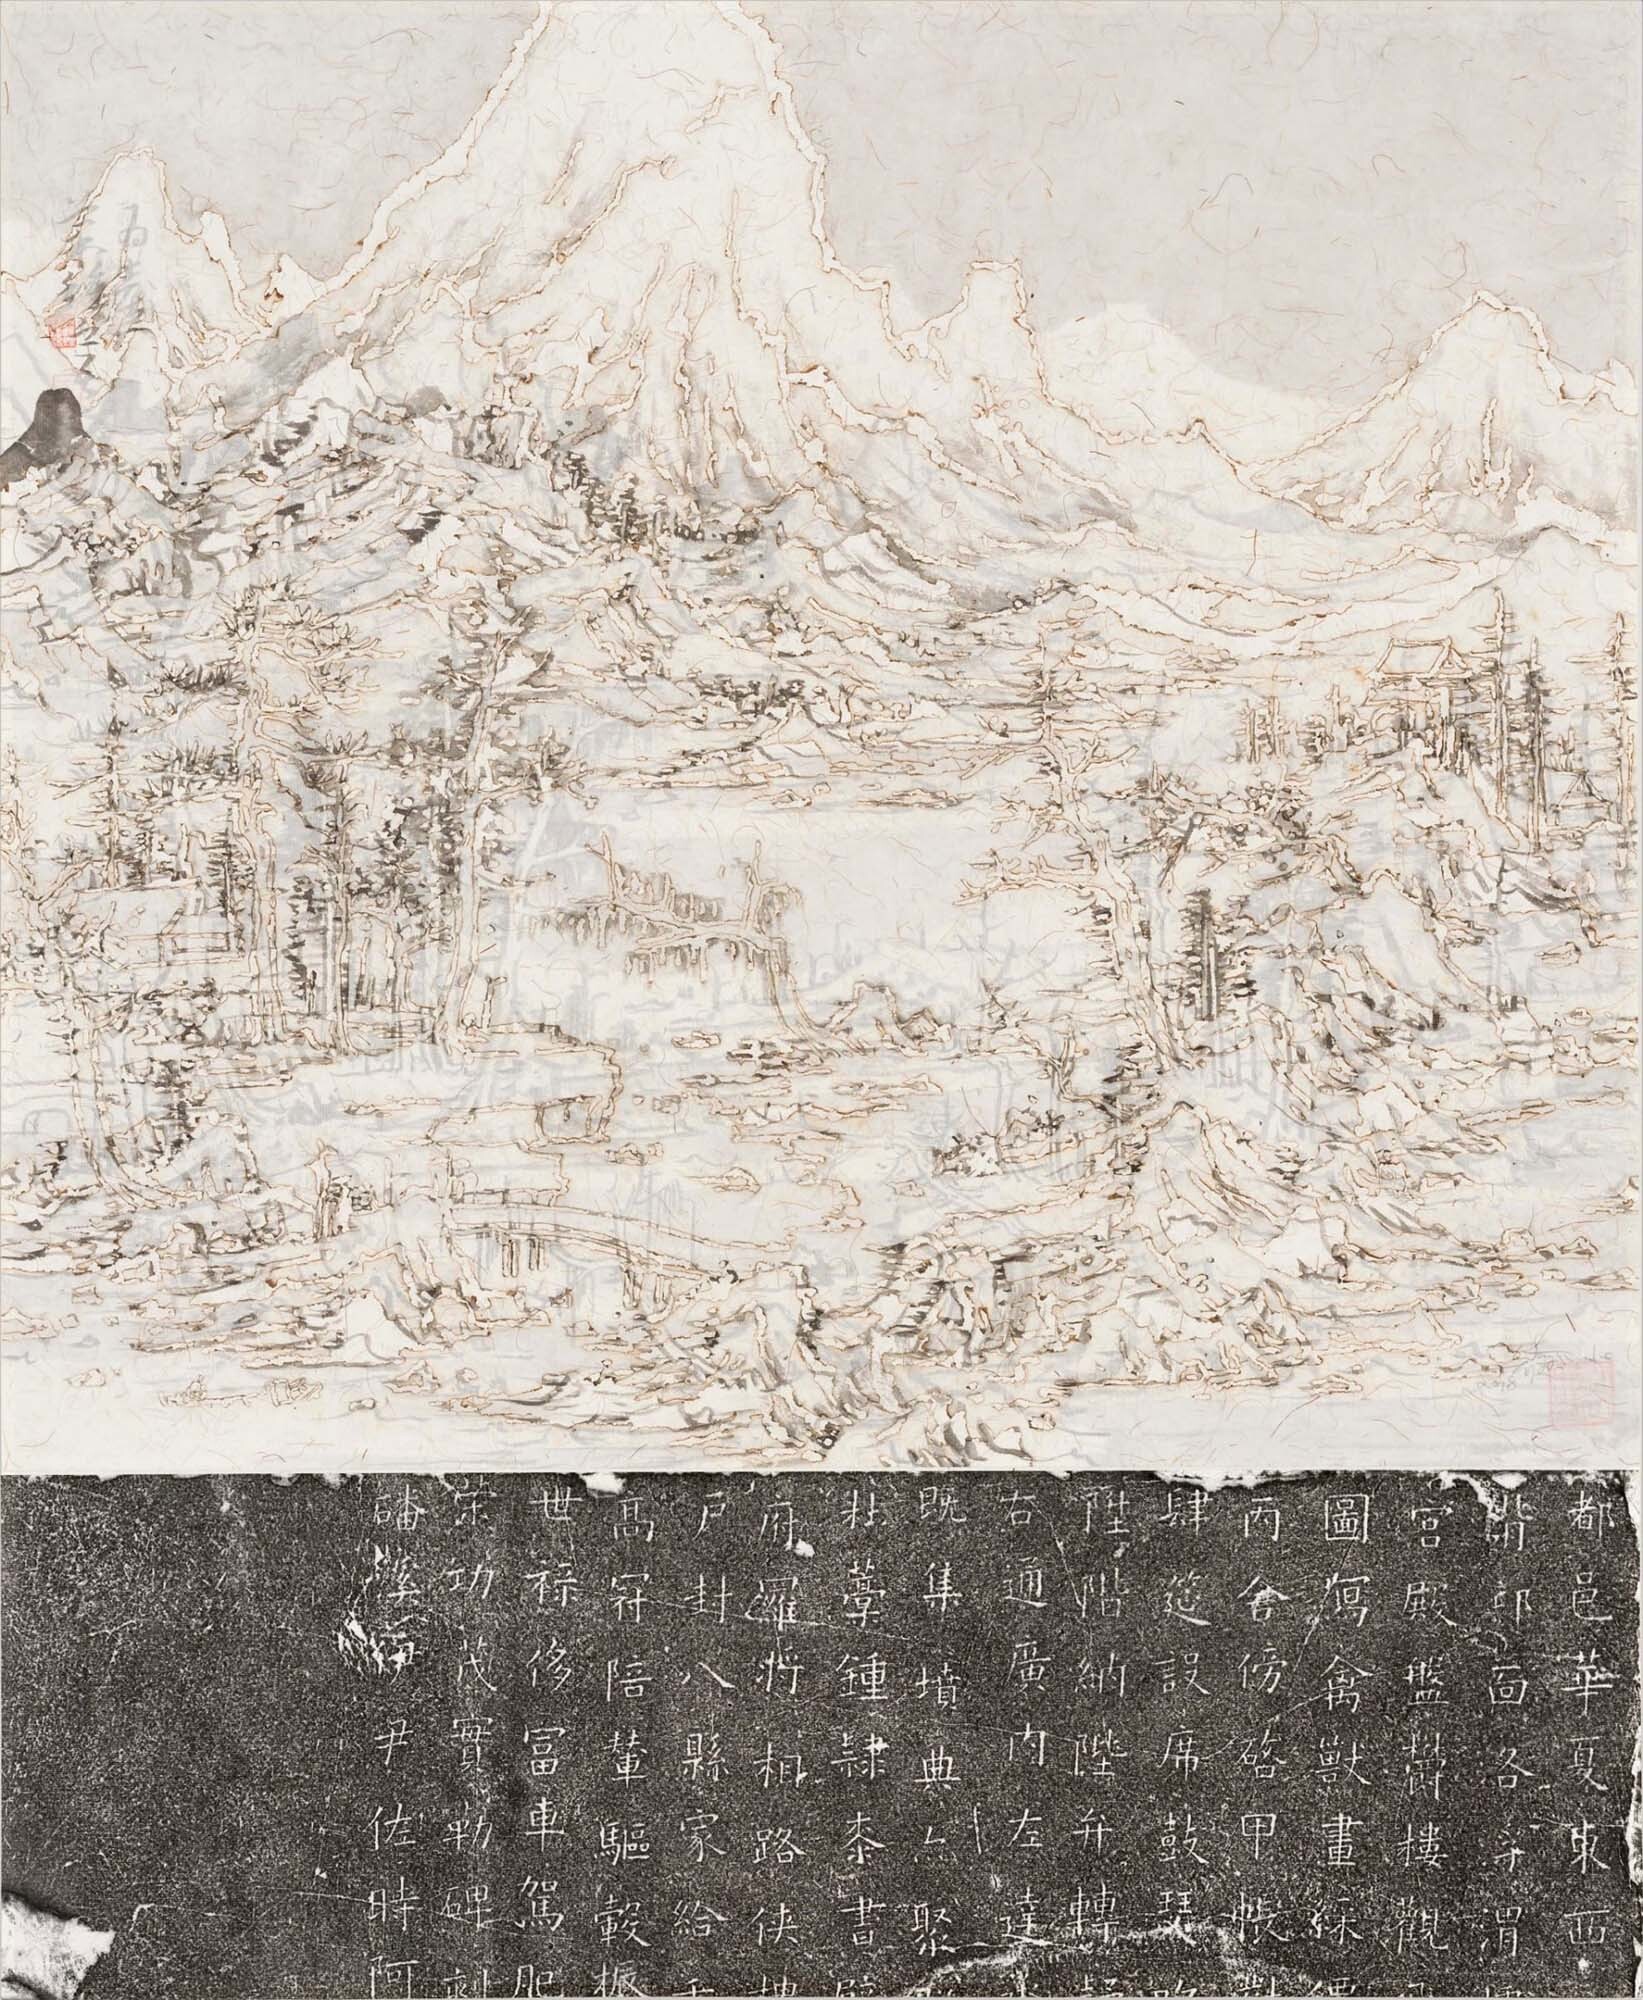 都邑華夏東西
背邙面洛浮渭
宮殿盤鬱樓觀
圖寫禽獸畫綵
丙舍傍啓甲帳對
肆筵設席鼓瑟吹
陞階納陛弁轉疑
右通廣內左達
既集墳典亦聚
杜藁鍾隸桼書壁
府羅將相路俠槐
戶封八縣家給千
高冠陪輦驅轂振
世祿侈冨車駕肥
策功茂實勒碑刻
磻溪伊尹佐時阿